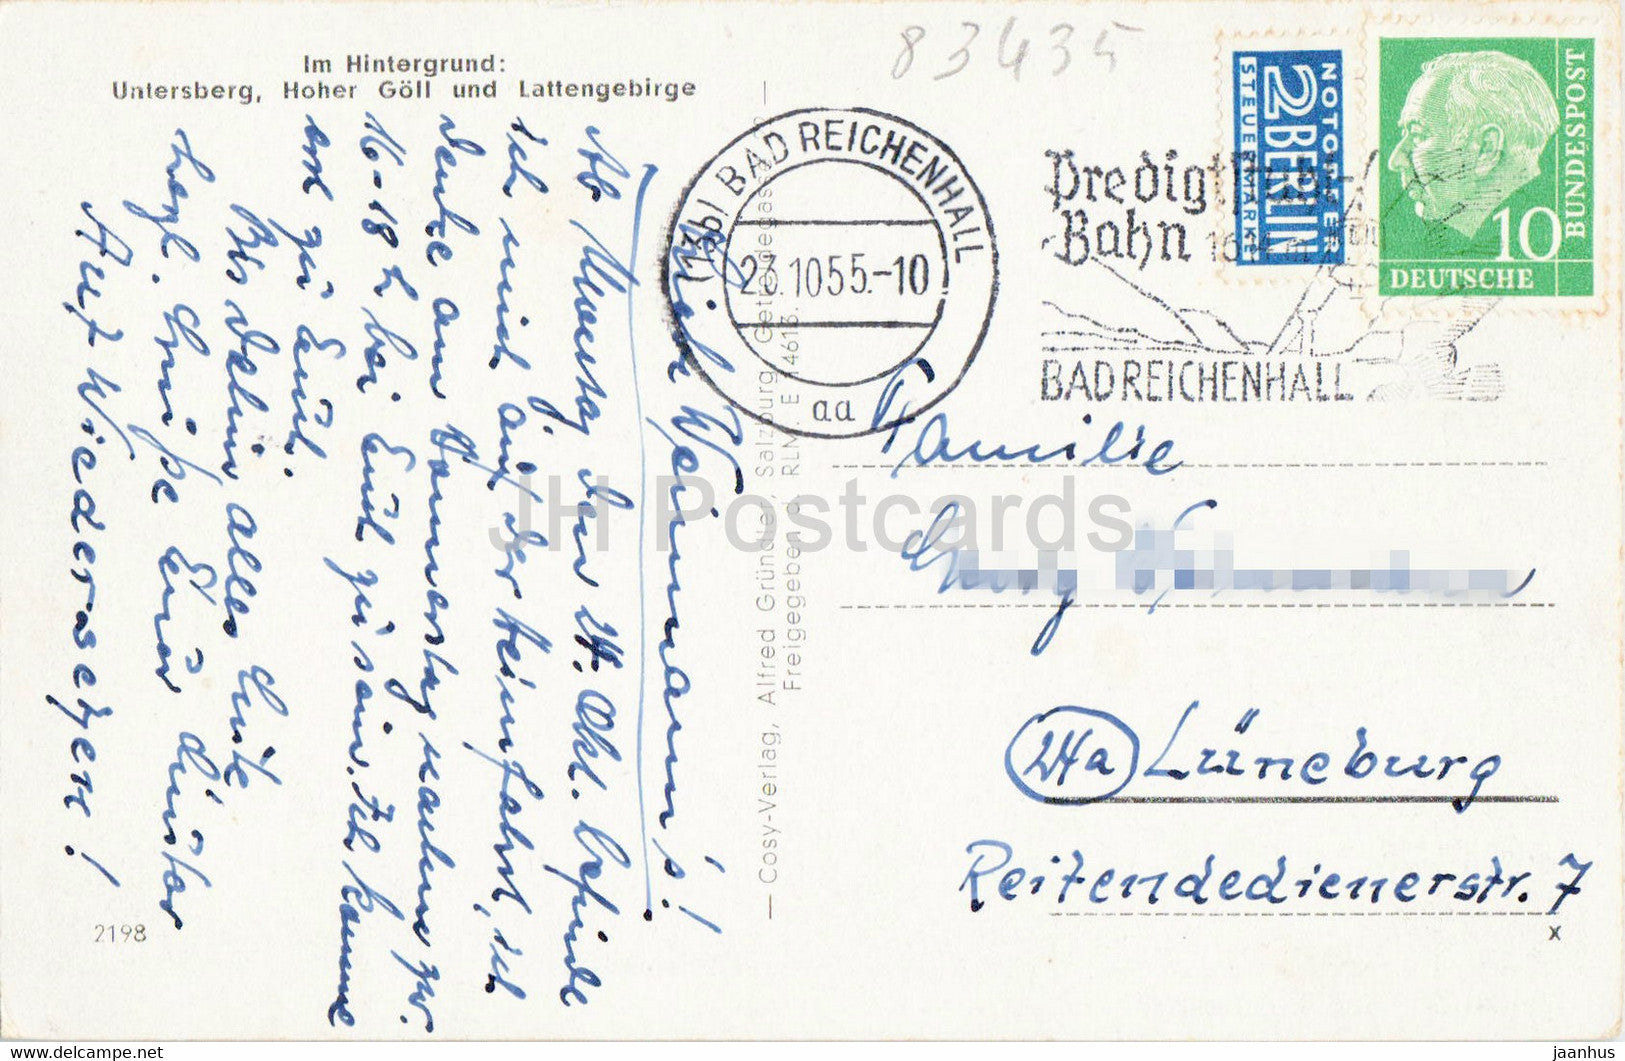 83435
Im Hintergrund:
Untersberg, Hoher Göll und Lattengebirge
NOTOPFER
2 BERLIN
STEUERMARKE
10
DEUTSCHE
BUNDESPOST
(13b) BAD REICHENHALL
23.10.55.-10
aa
Predigtstuhl-
Bahn 1614 m
BAD REICHENHALL
Weinmann's!
Ab Montag den 24. Okt. befinde
ich mich auf der Heimfahrt, ich
denke am Donnerstag zw.
16-18 h bei Euch zu sein. Ich komme
erst zu Euch.
Bis dahin alles Gute
herzl. Grüße Euer
Auf Wiedersehen!
2198
— Cosy-Verlag, Alfred Gründler, Salzburg, Getreidegasse
Freigegeben d. RLM. E 14613
Familie
24a Lüneburg
Reitendedienerstr. 7
x
JH Postcards
jaanhus @ delcampe.net